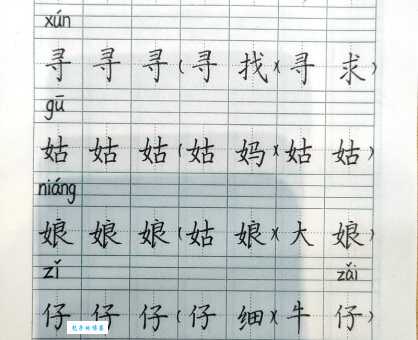 xún
寻 寻 寻 (寻 找)(寻 求)
gū
姑 姑 姑 (姑 妈)(姑 姑)
niáng
娘 娘 娘 (姑 娘)(大 娘)
zǐ zǎi
仔 仔 仔 (仔 细)(牛 仔)